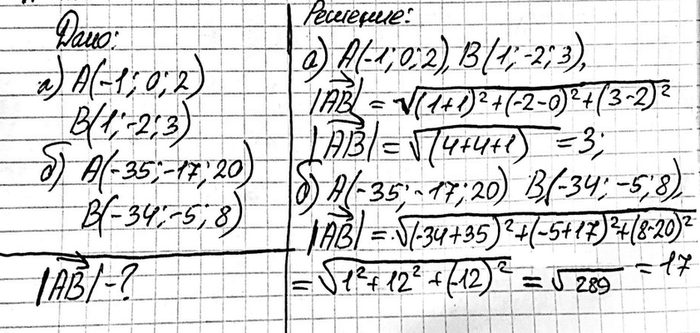 Дано:
а) A(-1; 0; 2)
B(1; -2; 3)
б) A(-35; -17; 20)
B(-34; -5; 8)
|AB| - ?
Решение:
а) A(-1; 0; 2), B(1; -2; 3),
|AB| = √((1+1)²+(-2-0)²+(3-2)²
|AB| = √(4+4+1) = 3;
б) A(-35; -17; 20) B(-34; -5; 8),
|AB| = √(-34+35)²+(-5+17)²+(8-20)²
= √1²+12²+(-12)² = √289 = 17